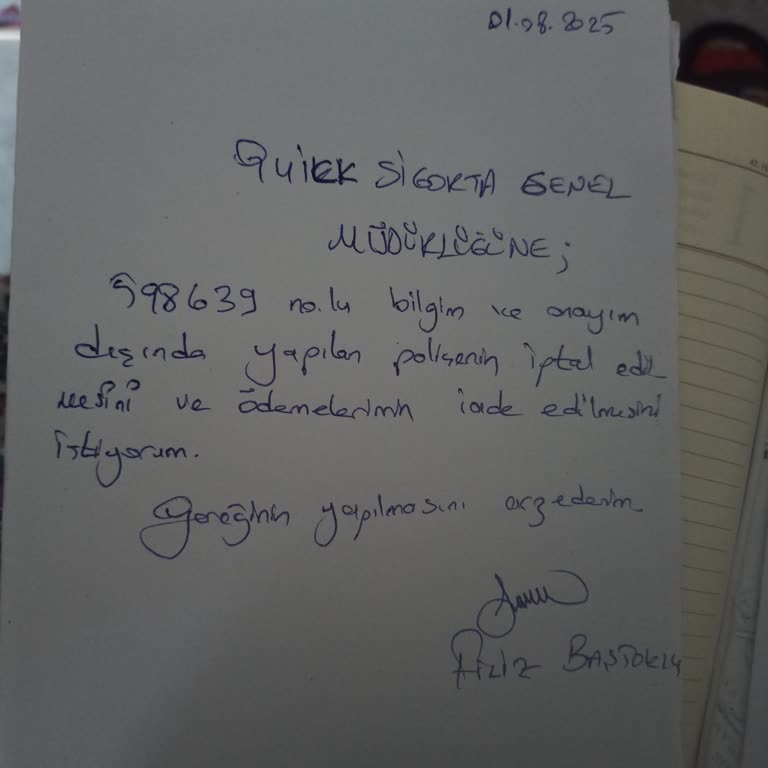 01.08.2025
QUICK SİGORTA GENEL
MÜDÜRLÜĞÜNE;
598639 no.lu bilgim ve onayım
dışında yapılan poliçenin iptal edil
mesini ve ödemelerimin iade edilmesini
istiyorum.
Gereğinin yapılmasını arzederim.